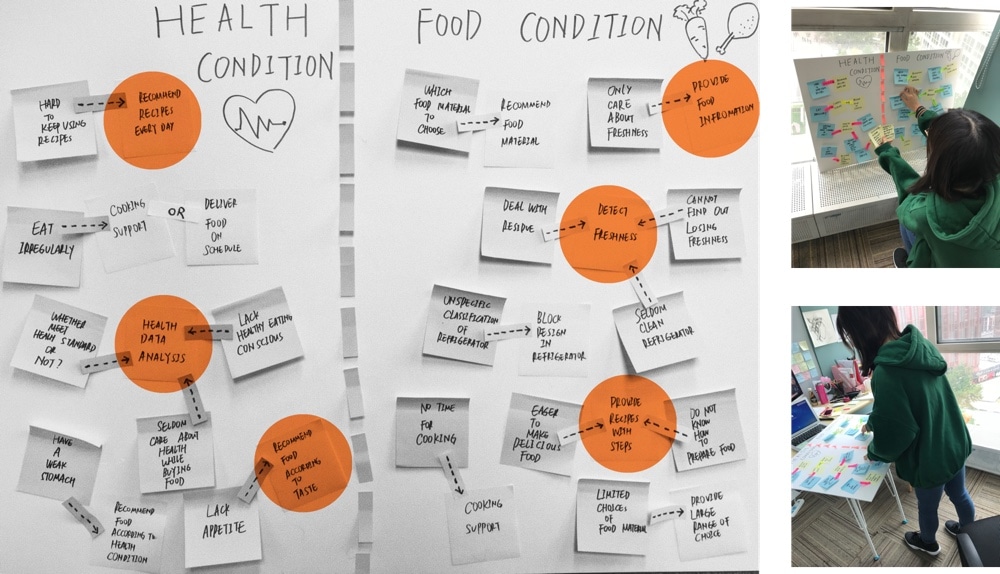 HEALTH
CONDITION
HARD
TO
KEEP USING
RECIPES
RECOMMEND
RECIPES
EVERY DAY
EAT
IRREGULARLY
COOKING
SUPPORT
OR
DELIVER
FOOD
ON
SCHEDULE
WHETHER
MEET
HEALHY STANDARD
OR
NOT?
HEALTH
DATA
ANALYSIS
LACK
HEALTHY EATING
CONSCIOUS
HAVE
A
WEAK
STOMACH
SELDOM
CARE ABOUT
HEALTH
WHILE
BUYING
FOOD
RECOMMEND
FOOD
ACCORDING
TO
TASTE
RECOMMEND
FOOD
ACCORDING TO
HEALTH
CONDITION
LACK
APPETITE
FOOD CONDITION
WHICH
FOOD MATERIAL
TO
CHOOSE
RECOMMEND
FOOD
MATERIAL
ONLY
CARE
ABOUT
FRESHNESS
PROVIDE
FOOD
INFROMATION
DEAL WITH
RESIDUE
DETECT
FRESHNESS
CANNOT
FIND OUT
LOSING
FRESHNESS
UNSPECIFIC
CLASSIFICATION
OF
REFRIGERATOR
BLOCK
DESIGN
IN
REFRIGERATOR
SELDOM
CLEAN
REFRIGERATOR
NO TIME
FOR
COOKING
EAGER
TO
MAKE
DELICIOUS
FOOD
PROVIDE
RECIPES
WITH
STEPS
DO NOT
KNOW
HOW
TO
PREPARE FOOD
COOKING
SUPPORT
LIMITED
CHOICES
OF
FOOD MATERIAL
PROVIDE
LARGE
RANGE OF
CHOICE
HEALTH
CONDITION
FOOD CONDITION